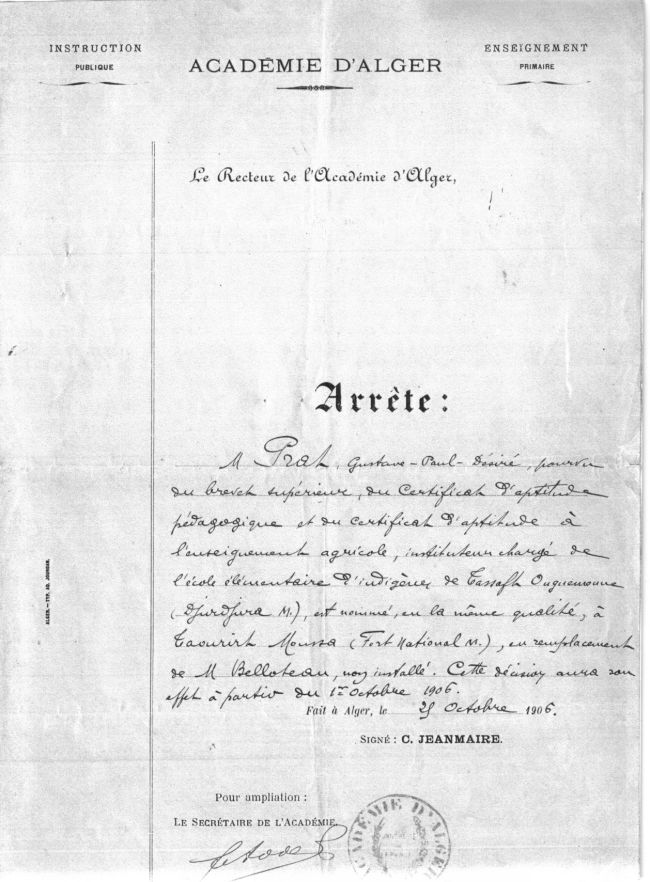 INSTRUCTION
PUBLIQUE
ACADÉMIE D'ALGER
ENSEIGNEMENT
PRIMAIRE
Le Recteur de l'Académie d'Alger,
Arrête :
M Prat, Gustave-Paul-Désiré, pourvu
du brevet supérieur, du certificat d'aptitude
pédagogique et du certificat d'aptitude à
l'enseignement agricole, instituteur chargé de
l'école élémentaire d'indigènes de Tassaft Ouguemoune
(Djurdjura M.), est nommé, en la même qualité, à
Taourirt Moussa (Fort National M.), en remplacement
de M Belloteau, non installé. Cette décision aura son
effet à partir du 1er Octobre 1906.
Fait à Alger, le Octobre 1906.
SIGNÉ : C. JEANMAIRE.
Pour ampliation :
LE SECRÉTAIRE DE L'ACADÉMIE,
ACADÉMIE D'ALGER
ALGER. — TYP. AD. JOURDAN.